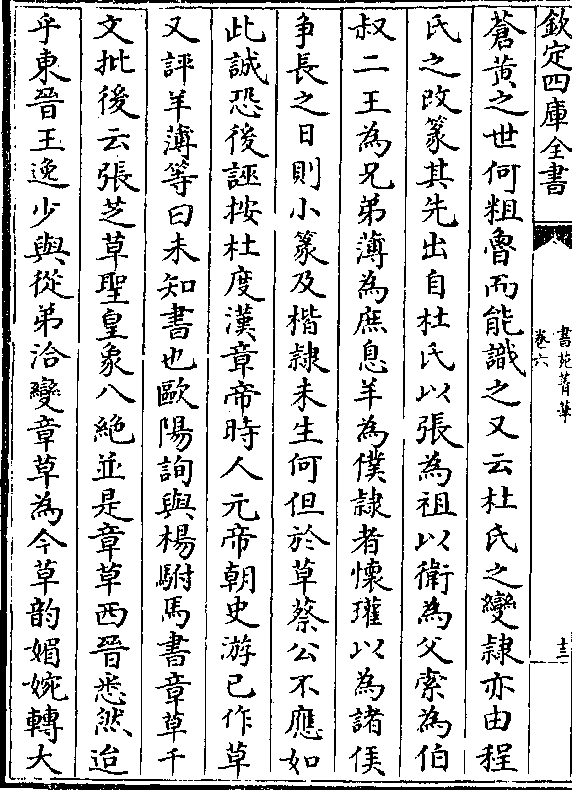 欽定四庫全書
書苑菁華
卷六
十三
蒼黃之世何粗魯而能識之又云杜氏之變隸亦由程
氏之改篆其先出自杜氏以張為祖以衛為父索為伯
叔二王為兄弟薄為庶息羊為僕隸者懷瓘以為諸侯
争長之日則小篆及楷隸未生何但於草蔡公不應如
此誠恐後誣按杜度漢章帝時人元帝朝史游已作草
又評羊薄等曰未知書也歐陽詢與楊駙馬書章草千
文批後云張芝草聖皇象八絶並是章草西晉悉然迨
乎東晉王逸少與從弟洽變章草為今草韵媚婉轉大